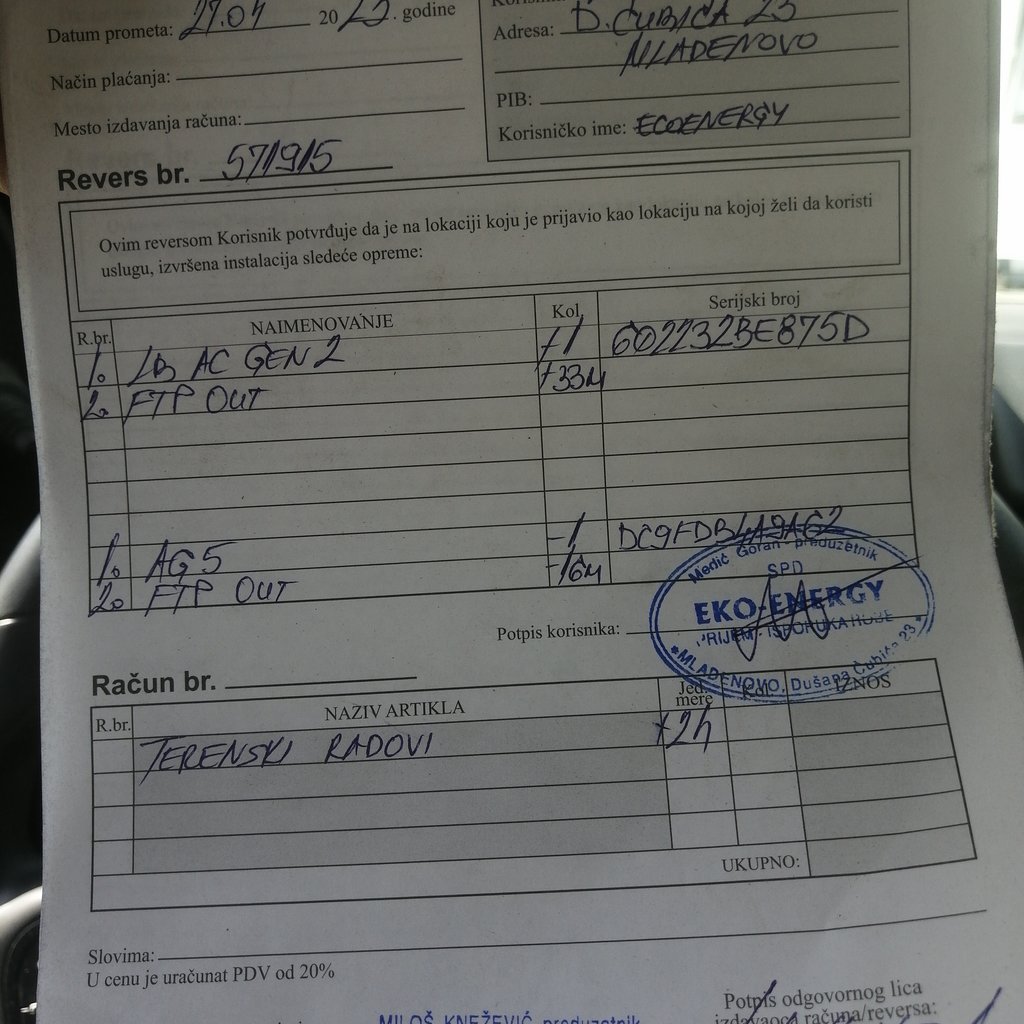 Datum prometa: 27.04 2023. godine
Način plaćanja:
Mesto izdavanja računa:
Adresa: D. ČUBIĆA 23
MLADENOVO
PIB:
Korisničko ime: ECOENERGY
Revers br. 571915
Ovim reversom Korisnik potvrđuje da je na lokaciji koju je prijavio kao lokaciju na kojoj želi da koristi
uslugu, izvršena instalacija sledeće opreme:
R.br. NAIMENOVANJE Kol. Serijski broj
1. LB AC GEN 2 +1 602232BE875D
2. FTP OUT +33m
1. AG 5 -1 DC9FDB4A9A62
2. FTP OUT -16m
Medić Goran - preduzetnik
SPD
EKO-ENERGY
PRIJEM - ISPORUKA ROBE
MLADENOVO, Dušana Čubića 23
Potpis korisnika:
Račun br.
R.br. NAZIV ARTIKLA Jed. mere Kol. IZNOS
TERENSKI RADOVI +2h
UKUPNO:
Slovima:
U cenu je uračunat PDV od 20%
MILOŠ KNEŽEVIĆ preduzetnik
Potpis odgovornog lica
izdavaoca računa/reversa: